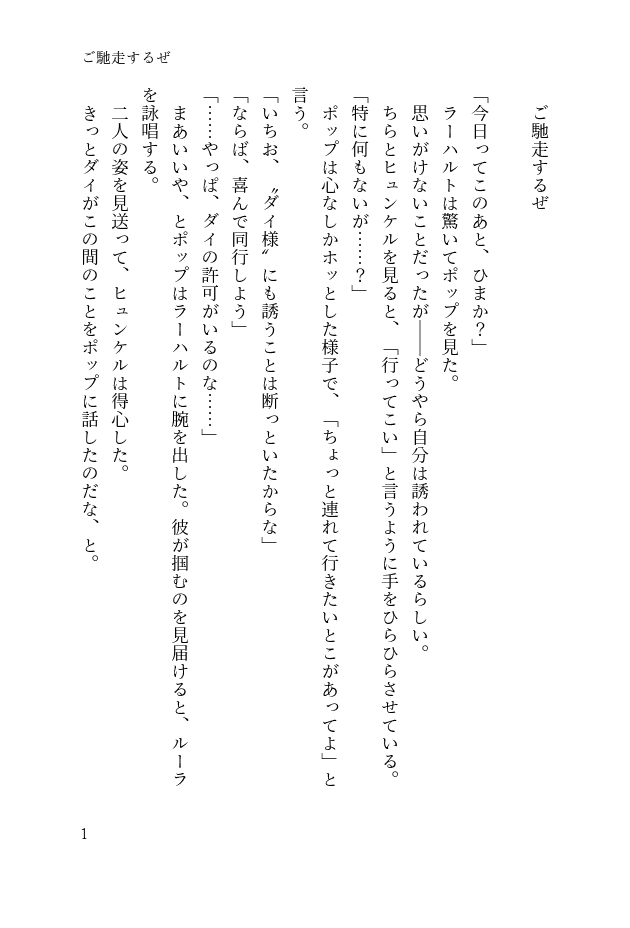 ご馳走するぜ
ご馳走するぜ
「今日ってこのあと、ひまか？」
ラーハルトは驚いてポップを見た。
思いがけないことだったが――どうやら自分は誘われているらしい。
ちらとヒュンケルを見ると、「行ってこい」と言うように手をひらひらさせている。
「特に何もないが……？」
ポップは心なしかホッとした様子で、「ちょっと連れて行きたいとこがあってよ」と
言う。
「いちお、〝ダイ様〟にも誘うことは断っといたからな」
「ならば、喜んで同行しよう」
「……やっぱ、ダイの許可がいるのな……」
まあいいや、とポップはラーハルトに腕を出した。彼が掴むのを見届けると、ルーラ
を詠唱する。
二人の姿を見送って、ヒュンケルは得心した。
きっとダイがこの間のことをポップに話したのだな、と。
1